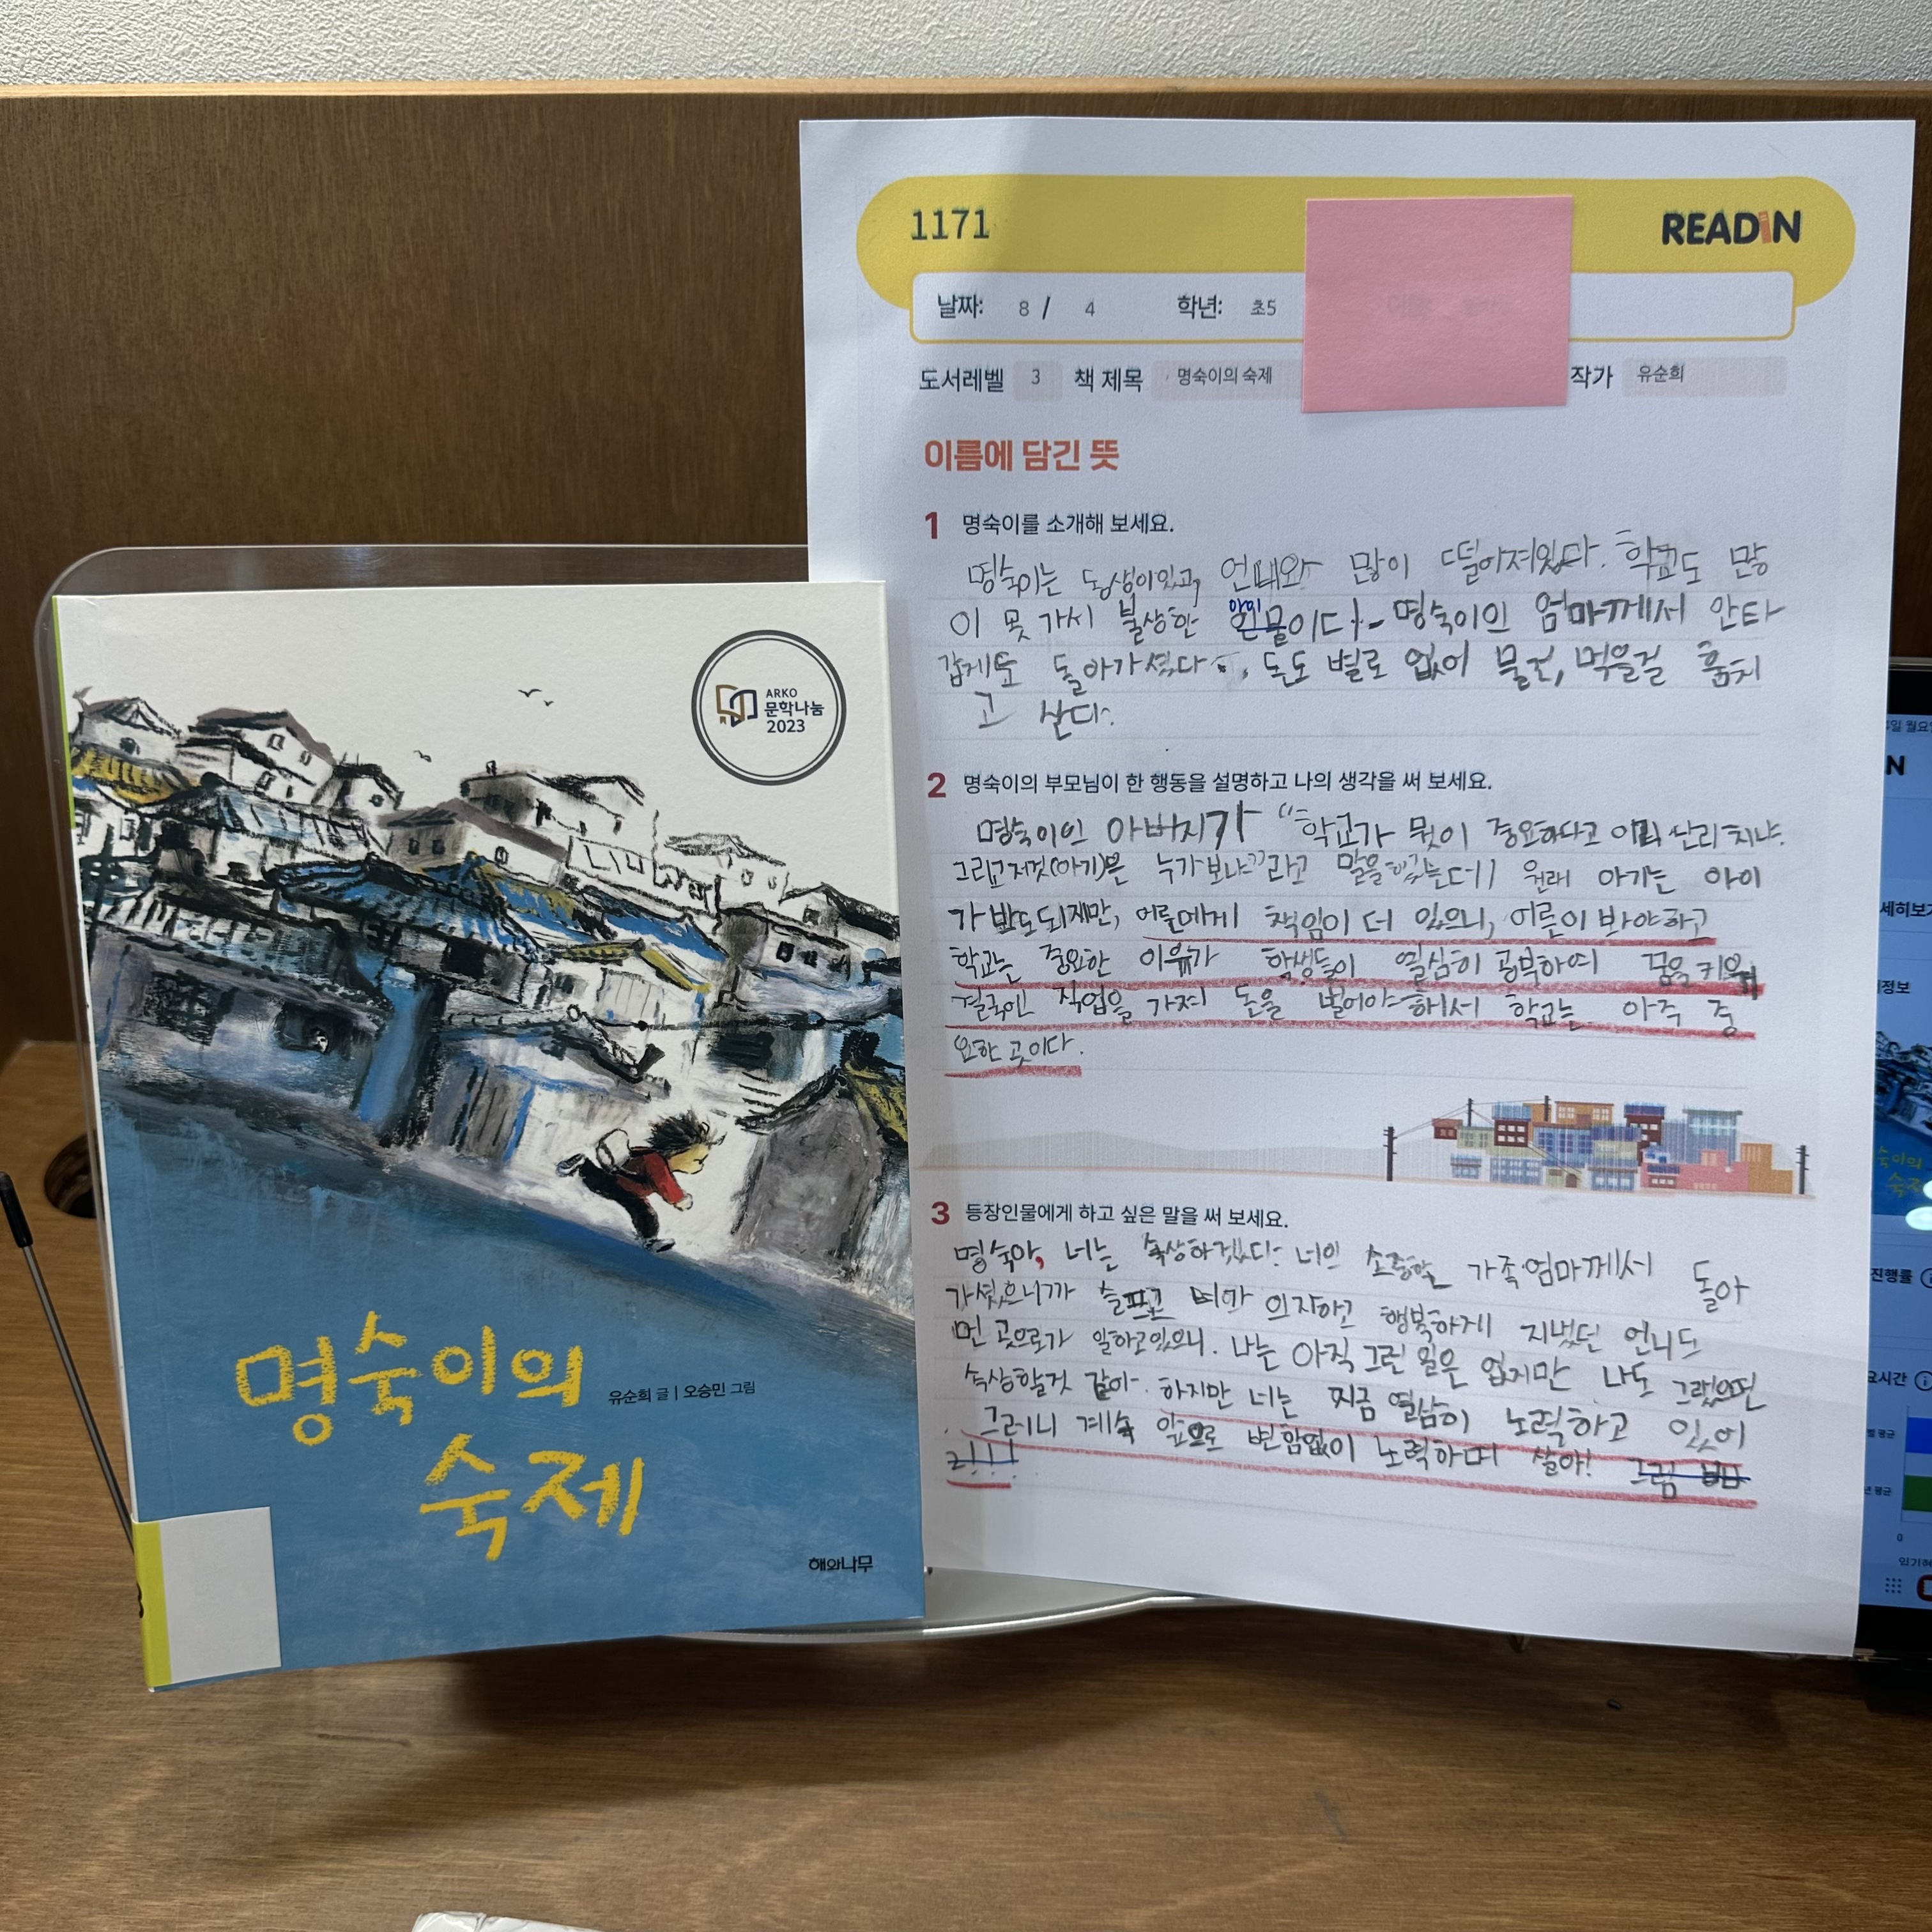 ARKO
문학나눔
2023
명숙이의
숙제
유순희 글 | 오승민 그림
해와나무
1171
READiN
날짜: 8 / 4 학년: 초5
도서레벨 3 책 제목 명숙이의 숙제 작가 유순희
이름에 담긴 뜻
1 명숙이를 소개해 보세요.
명숙이는 동생이있고, 언니와 많이 떨어져있다. 학교도 많
이 못 가서 불상한 아이이다. 명숙이의 엄마께서 안타
갑게도 돌아가셨다. 돈도 별로 없어 물건, 먹을걸 훔치
고 산다.
2 명숙이의 부모님이 한 행동을 설명하고 나의 생각을 써 보세요.
명숙이의 아버지가 "학교가 뭣이 중요하다고 이리 난리 치냐.
그리고저것(아기)은 누가보냐"라고 말을했는데 원래 아기는 아이
가 봐도되제만, 어른에게 책임이 더 있으니, 어른이 봐야하고
학교는 중요한 이유가 학생들이 열심히 공부하여 꿈을 키워
결국인 직업을 가져 돈을 벌어야해서 학교는 아주 중
요한 곳이다.
3 등장인물에게 하고 싶은 말을 써 보세요.
명숙아, 너는 속상하겠다. 너의 소중한 가족·엄마께서 돌아
가셨으니까 슬프고 네가 의지하고 행복하게 지냈던 언니도
먼 곳으로가 일하고있으니. 나는 아직 그런 일은 없지만 나도 그랬으면
속상할것 같아. 하지만 너는 지금 열심히 노력하고 있어
그러니 계속 앞으로 변함없이 노력하며 살아!
월요일
N
세히보기
정보
숙이의
숙제
진행률
요시간
평균
평균
0